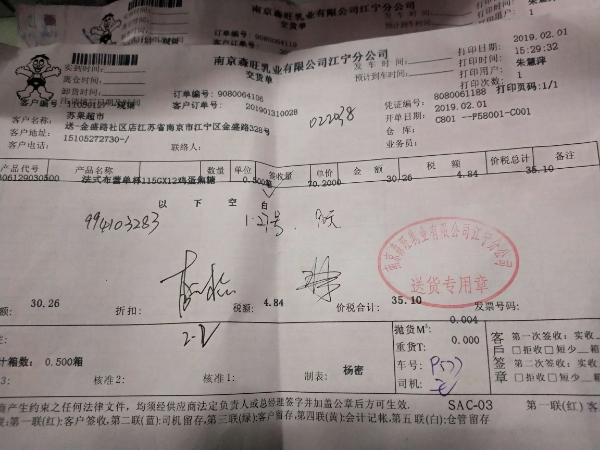 南京森旺乳业有限公司江宁分公司
交货单
订单编号: 9080064106
客户订单号: 201901310028
实到时间:
离仓时间:
卸货时间:
发车时间:
预计到车时间:
打印日期: 2019.02.01
打印时间: 15:29:32
打印用户: 朱慧萍
打印次数: 1
打印页码:1/1
凭证编号: 8080061188
开单日期: 2019.02.01
仓 库: C801 --P58001-C001
业务员:
022038
客户编号:
客户名称: 苏果超市
客户地址: 送-金盛路社区店江苏省南京市江宁区金盛路328号
15105272730-/
联系人:
产品代号 产品名称 数量 单位 签收量 单价 金 额 税 额 价税合计 备注
806129030500 法式布蕾单杯115GX12鸡蛋焦糖 0.500箱 70.2000 30.26 4.84 35.10
以 下 空 白
994103283
1.27号
南京森旺乳业有限公司江宁分公司
送货专用章
额: 30.26 折扣: 税额: 4.84 价税合计: 35.10 发票号码:
2-2
计箱数: 0.500箱
抛货M³: 0.004
重货T: 0.000
车号:
司机:
客户签章
第一次签收: 实收
拒收 短少 箱
第二次签收: 实收
拒收 短少 箱
核准2: 核准1: 制表: 杨密
商产生约束之任何法律文件，均须经供应商法定负责人或总经理签字并加盖公章后方可生效. SAC-03 第一联(红)
第一联(红):客户签收,第二联(蓝):司机留存,第三联(绿):客户留存,第四联(黄):会计记帐,第五联(白):仓管留存